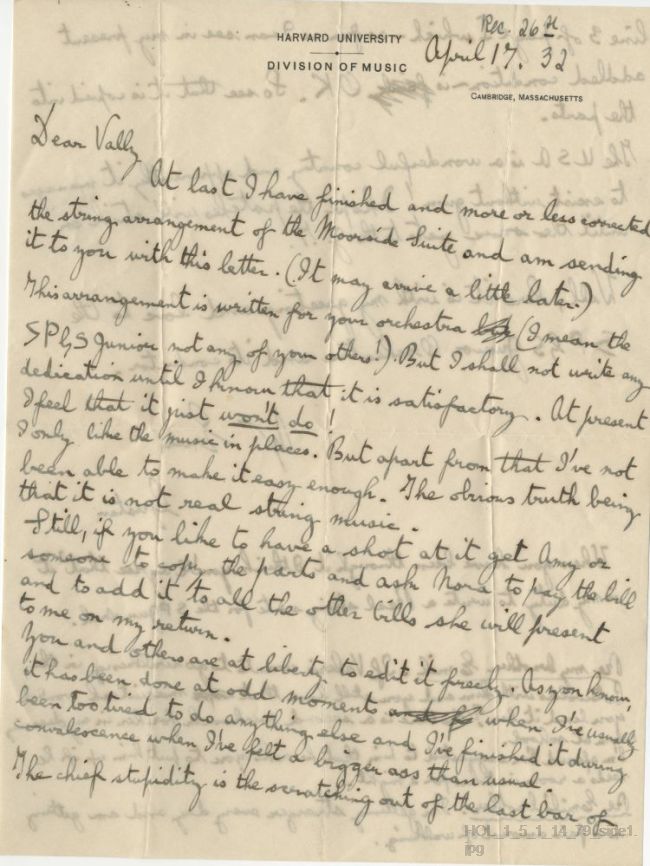 HARVARD UNIVERSITY
DIVISION OF MUSIC
Rec. 26th
April 17. 32
CAMBRIDGE, MASSACHUSETTS
Dear Vally
At last I have finished and more or less corrected
the string arrangement of the Moorside Suite and am sending
it to you with this letter. (It may arrive a little later.)
This arrangement is written for your orchestra (I mean the
SPGS Junior not any of your others!). But I shall not write any
dedication until I know that it is satisfactory. At present
I feel that it just won't do!
I only like the music in places. But apart from that I've not
been able to make it easy enough. The obvious truth being
that it is not real string music.
Still, if you like to have a shot at it get Amy or
someone to copy the parts and ask Nora to pay the bill
and to add it to all the other bills she will present
to me on my return.
You and others are at liberty to edit it freely. As you know,
it has been done at odd moments when I've usually
been too tired to do anything else and I've finished it during
convalescence when I've felt a bigger ass than usual.
The chief stupidity is the scratching out of the last bar of
HOL_1_5_1_14_79(side1.
jpg